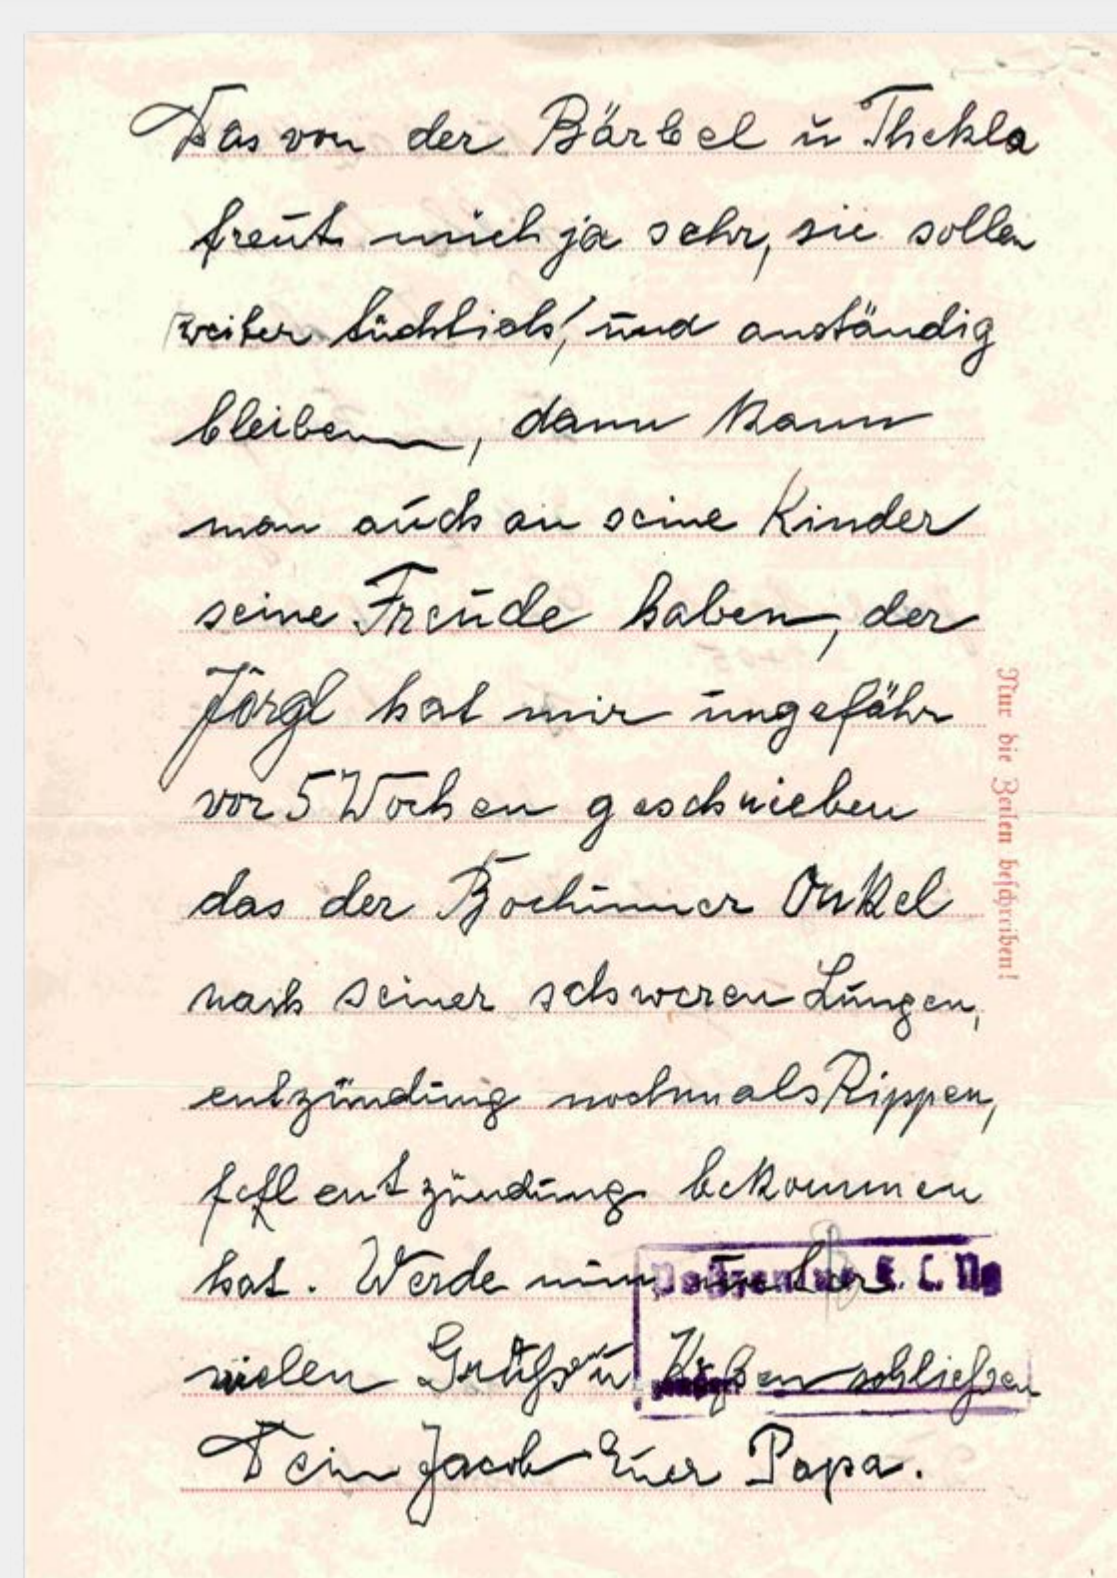 Das von der Bärbel ü Thekla
freüt mich ja sehr, sie sollen
weiter tüchtich! ünd anständig
bleiben, dann kann
man aüch an seine Kinder
seine Freüde haben, der
Jörgl hat mir üngefähr
vor 5 Wochen geschrieben
das der Bochümer Onkel
nach seiner schweren Lüngen,
entzündüng nochmals Rippen,
fellentzündüng bekommen
hat. Werde nün ünter
vielen Grüßen ü Küßen schließen
Dein Jacob Eüer Papa.
Nur die Zeilen beschreiben!